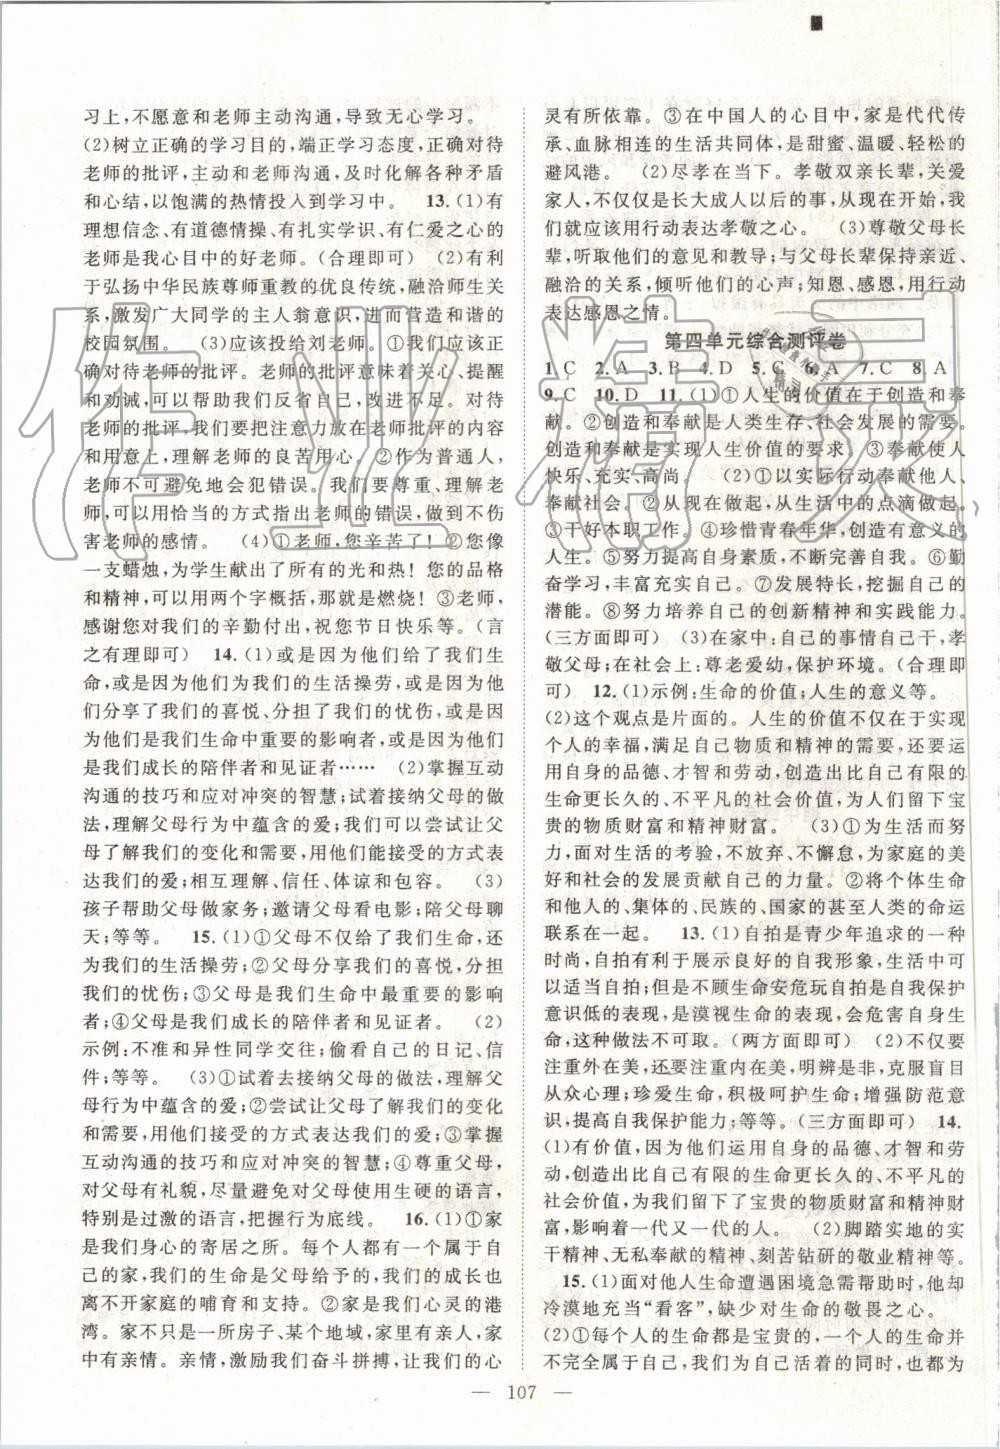 习上,不愿意和老师主动沟通,导致无心学习。
(2)树立正确的学习目的,端正学习态度,正确对待
老师的批评,主动和老师沟通,及时化解各种矛盾
和心结,以饱满的热情投入到学习中。 13.(1)有
理想信念、有道德情操、有扎实学识、有仁爱之心的
老师是我心目中的好老师。(合理即可) (2)有利
于弘扬中华民族尊师重教的优良传统,融洽师生关
系,激发广大同学的主人翁意识,进而营造和谐的
校园氛围。 (3)应该投给刘老师。①我们应该正
确对待老师的批评。老师的批评意味着关心、提醒
和劝诫,可以帮助我们反省自己,改进不足。对待
老师的批评,我们要把注意力放在老师批评的内容
上面,理解老师的良苦用心。②作为普通人,
老师不可避免地会犯错误。我们要尊重、理解老
师,可以用恰当的方式指出老师的错误,做到不伤
害老师的感情。 (4)①老师,您辛苦了!②您像
一支蜡烛,为学生献出了所有的光和热!您的品格
和精神,可以用两个字概括,那就是燃烧!③老师,
感谢您对我们的辛勤付出,祝您节日快乐等。(言
之有理即可) 14.(1)或是因为他们给了我们生
命,或是因为他们为我们的生活操劳,或是因为他
们分享了我们的喜悦、分担了我们的忧伤,或是因
为他们是我们生命中重要的影响者,或是因为他们
是我们成长的陪伴者和见证者…… (2)掌握互动
沟通的技巧和应对冲突的智慧;试着接纳父母的做
法,理解父母行为中蕴含的爱;我们可以尝试让父
母了解我们的变化和需要,用他们能接受的方式表
达我们的爱;相互理解、信任、体谅和包容。 (3)
孩子帮助父母做家务;邀请父母看电影;陪父母聊
天;等等。 15.(1)①父母不仅给了我们生命,还为
我们的生活操劳;②父母分享我们的喜悦,分担我
们的忧伤;③父母是我们生命中最重要的影响
者;④父母是我们成长的陪伴者和见证者。 (2)
示例:不准和异性同学交往;偷看自己的日记、信
件;等等。 (3)①试着去接纳父母的做法,理解父
母行为中蕴含的爱;②尝试让父母了解我们的变化
和需要,用他们接受的方式表达我们的爱;③掌握
互动沟通的技巧和应对冲突的智慧;④尊重父母,
对父母有礼貌,尽量避免对父母使用生硬的语言,
特别是过激的语言,把握行为底线。 16.(1)①家
是我们身心的寄居之所。每个人都有一个属于自
己的家,我们的生命是父母给予的,我们的成长也
离不开家庭的哺育和支持。②家是我们心灵的港
湾。家不只是一所房子、某个地域,家里有亲人,家
中有亲情。亲情,激励我们奋斗拼搏,让我们的心
灵有所依靠。③在中国人的心目中,家是代代传
承、血脉相连的生活共同体,是甜蜜、温暖、轻松的
避风港。 (2)尽孝在当下。孝敬双亲长辈,关爱
家人,不仅仅是长大成人以后的事,从现在开始,我
们就应该用行动表达孝敬之心。 (3)尊敬父母长
辈,听取他们的意见和教导;与父母长辈保持亲近、
融洽的关系,倾听他们的心声;知恩、感恩,用行动
表达感恩之情。
第四单元综合测评卷
1.C 2.A 3.B 4.D 5.C 6.A 7.C 8.A
9.C 10.D 11.(1)①人生的价值在于创造和奉
献。②创造和奉献是人类生存、社会发展的需要。
创造和奉献是实现人生价值的要求。③奉献使人
快乐、充实、高尚。 (2)①以实际行动奉献他人、
奉献社会。②从现在做起,从生活中的点滴做起。
③干好本职工作。④珍惜青春年华,创造有意义的
人生。⑤努力提高自身素质,不断完善自我。⑥勤
奋学习,丰富充实自己。⑦发展特长,挖掘自己的
潜能。⑧努力培养自己的创新精神和实践能力。
(三方面即可) (3)在家中:自己的事情自己干,孝
敬父母;在社会上:尊老爱幼,保护环境。(合理即
可) 12.(1)示例:生命的价值;人生的意义等。
(2)这个观点是片面的。人生的价值不仅在于实现
个人的幸福,满足自己物质和精神的需要,还要运
用自身的品德、才智和劳动,创造出比自己有限的
生命更长久的、不平凡的社会价值,为人们留下宝
贵的物质财富和精神财富。 (3)①为生活而努
力,面对生活的考验,不放弃、不懈怠,为家庭的美
好和社会的发展贡献自己的力量。②将个体生命
和他人的、集体的、民族的、国家的甚至人类的命运
联系在一起。 13.(1)自拍是青少年追求的一种
时尚,自拍有利于展示良好的自我形象,生活中可
以适当自拍;但是不顾生命安危玩自拍是自我保护
意识低的表现,是漠视生命的表现,会危害自身生
命,这种做法不可取。(两方面即可) (2)不仅要
注重外在美,还要注重内在美,明辨是非,克服盲目
从众心理;珍爱生命,积极呵护生命;增强防范意
识,提高自我保护能力;等等。(三方面即可) 14.
(1)有价值,因为他们运用自身的品德、才智和劳
动,创造出比自己有限的生命更长久的、不平凡的
社会价值,为我们留下了宝贵的物质财富和精神财
富,影响着一代又一代的人。 (2)脚踏实地的实
干精神、无私奉献的精神、刻苦钻研的敬业精神等。
15.(1)面对他人生命遭遇困境急需帮助时,他却
冷漠地充当“看客”,缺少对生命的敬畏之心。
(2)①每个人的生命都是宝贵的,一个人的生命并
不完全属于自己,我们为自己活着的同时,也都为
— 107 —
作业精灵